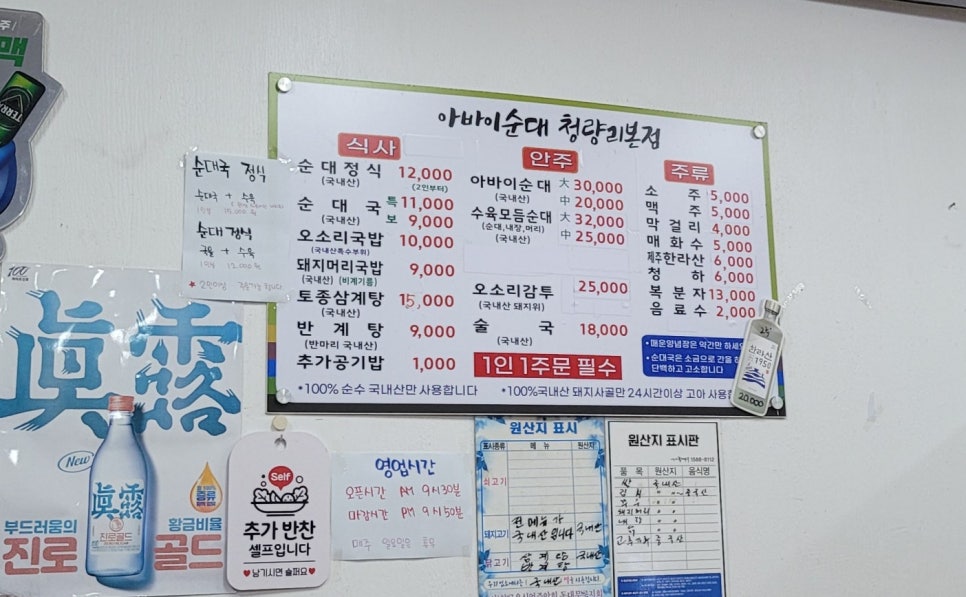 맥
TERRA
아바이순대 청량리본점
식사
순대정식 12,000
(국내산) (2인부터)
순대국 특 11,000
(국내산) 보 9,000
오소리국밥 10,000
(국내산특수부위)
돼지머리국밥 9,000
(국내산) (비계기름)
토종삼계탕 15,000
(국내산)
반계탕 9,000
(반마리 국내산)
추가공기밥 1,000
안주
아바이순대 大 30,000
(국내산) 中 20,000
수육모듬순대 大 32,000
(순대,내장,머리) 中 25,000
(국내산)
오소리감투 25,000
(국내산 돼지위)
술국 18,000
(국내산)
1인 1주문 필수
주류
소주 5,000
맥주 5,000
막걸리 4,000
매화수 5,000
제주한라산 6,000
청하 6,000
복분자 13,000
음료수 2,000
• 매운양념장은 약간만 하세요
• 순대국은 소금으로 간을 하
단백하고 고소합니다
*100% 순수 국내산만 사용합니다
*100%국내산 돼지사골만 24시간이상 고아 사용
한라산
1950
20,000
순대국 정식
순대국 + 수육
순대정식
국물 + 수육
1인분 12,000원
★ 2인이상
100
眞露
New
眞露
진로골드
부드러움의
진로
황금비율
골드
Self
추가 반찬
셀프입니다
♥남기시면 슬퍼요♥
영업시간
오픈시간 AM 9시30분
마감시간 PM 9시50분
매주 일요일은 휴무
원산지 표시
표시종류 메뉴 원산지
쇠고기
돼지고기 전메뉴가 국내산입니다 국내산
닭고기 삼계탕 반계탕 국내산
원산지 표시판
품목 원산지 음식명
쌀 국내산
김치
돼지머리
내장
고춧가루 중국산